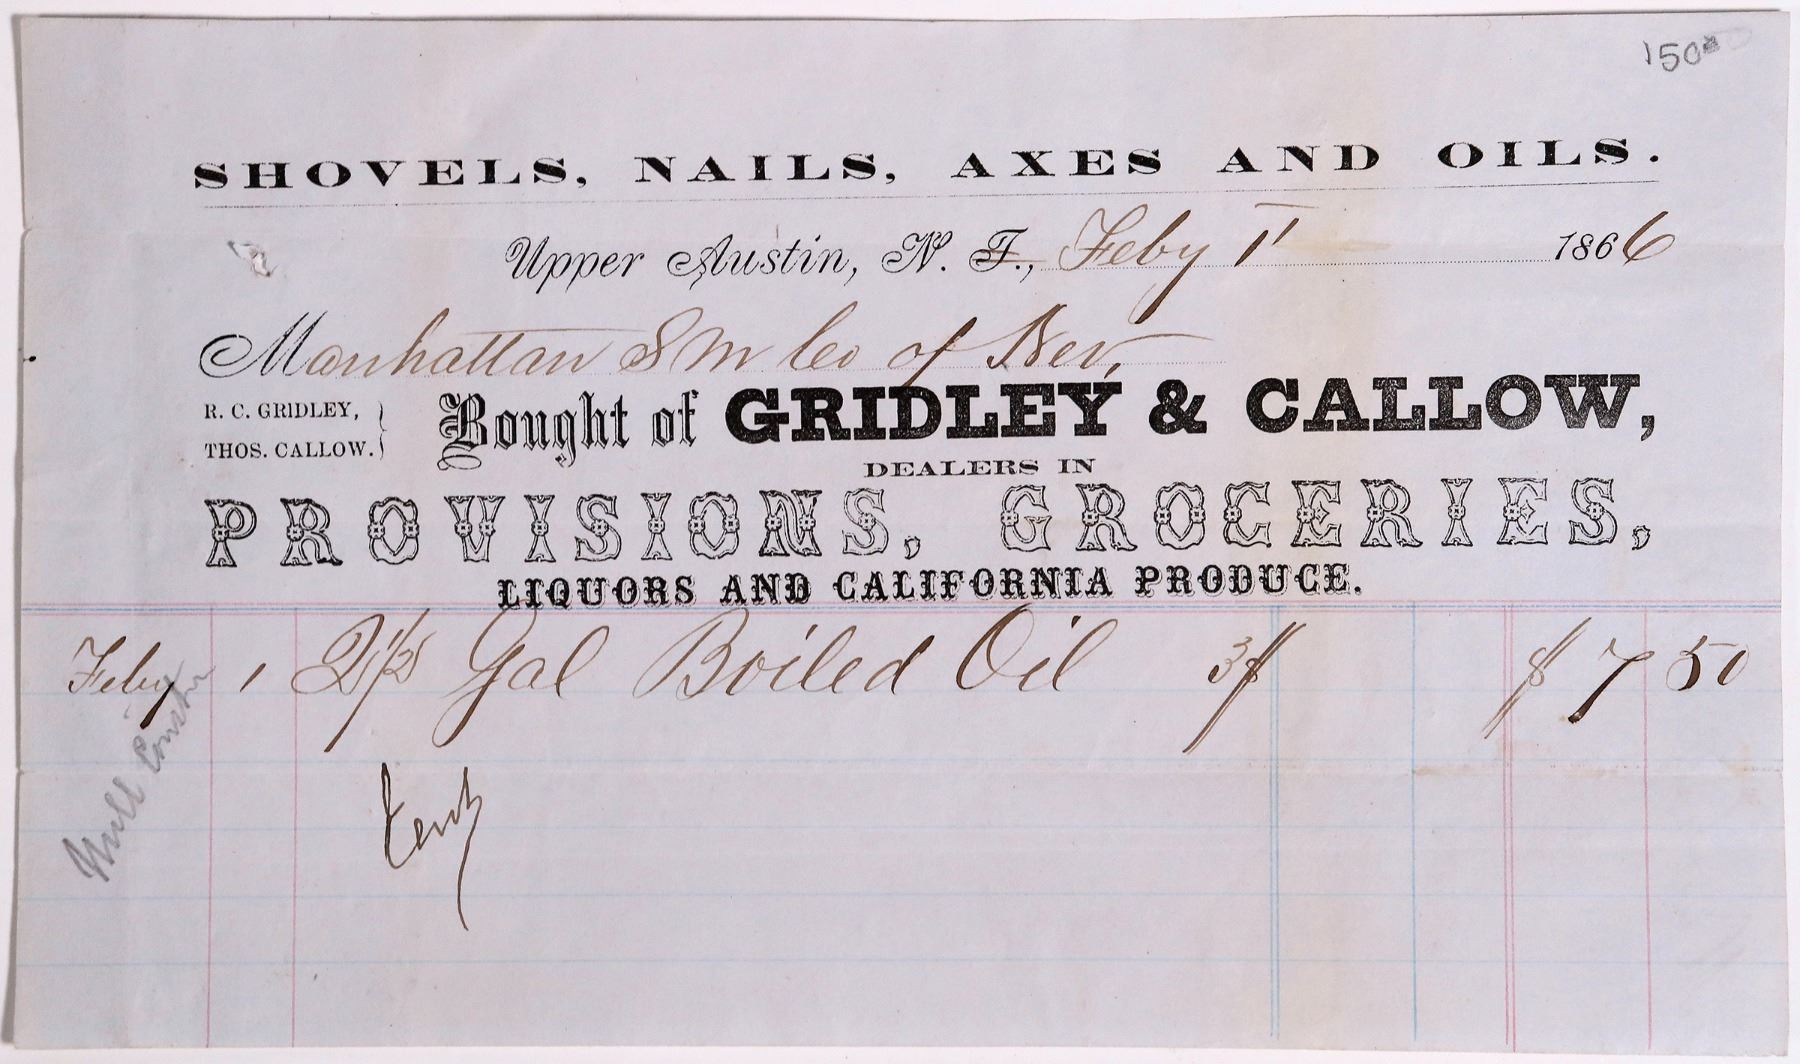 150
SHOVELS, NAILS, AXES AND OILS.
Upper Austin, N. T., Feby 1 1866
Manhattan S M Co of Nev.
R. C. GRIDLEY,
THOS. CALLOW.
Bought of GRIDLEY & CALLOW,
DEALERS IN
PROVISIONS, GROCERIES,
LIQUORS AND CALIFORNIA PRODUCE.
Feby 1 2 1/2 Gal Boiled Oil 3$ $ 7 50
Mill Constn